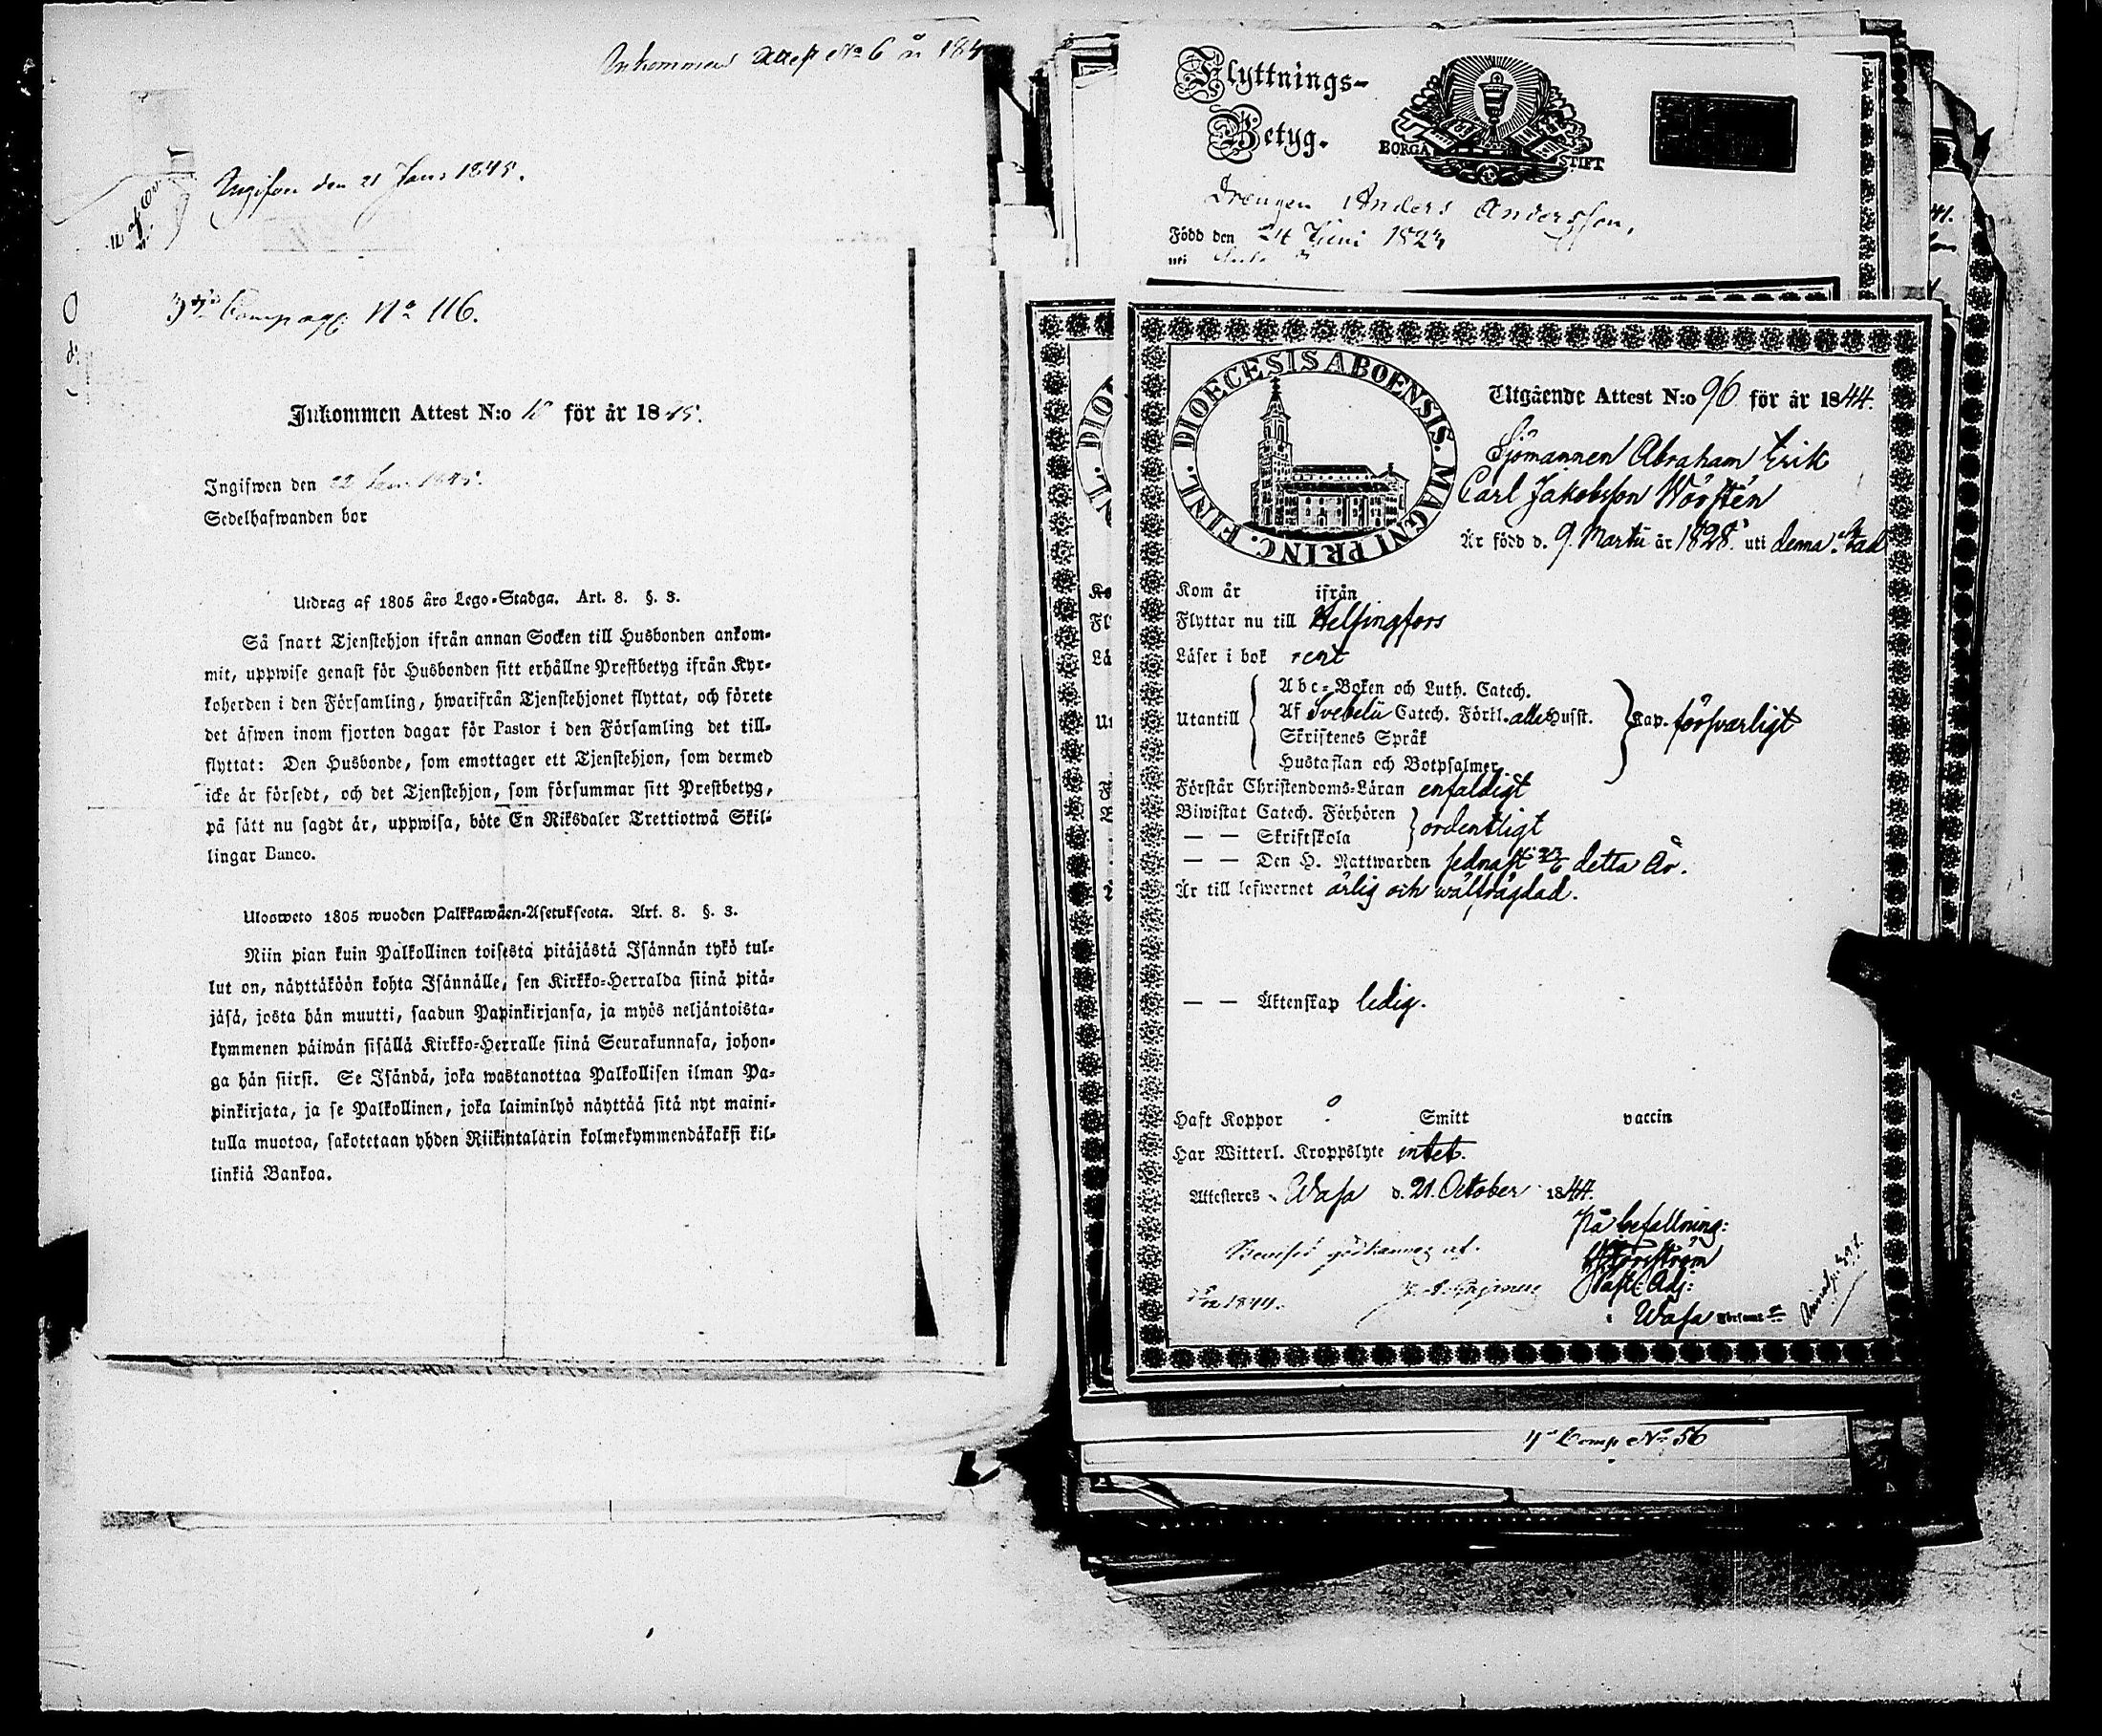 Inkommen Attest No 6 år 184
Ingifven den 21 Jan. 1845.
3dje Compagn. No 116.
Inkommen Attest N:o för år 1845.
Ingifwen den 22 Jan. 1845.
Sedelhafwanden bor
Utdrag af 1805 års Lego-Stadga. Art. 8. §. 3.
Så snart Tjenstehjon ifrån annan Socken till Husbonden ankom-
mit, uppwise genast för Husbonden sitt erhållne Prestbetyg ifrån Kyr-
koherden i den Församling, hwarifrån Tjenstehjonet flyttat, och förete
det åfwen inom fjorton dagar för Pastor i den Församling det till-
flyttat: Den Husbonde, som emottager ett Tjenstehjon, som dermed
icke år försedt, och det Tjenstehjon, som försummar sitt Prestbetyg,
på sått nu sagdt år, uppwisa, böte En Riksdaler Trettiotwå Skil-
lingar Banco.
Ulosweto 1805 wuoden Palkkawäen-Asetuksesta. Art. 8. §. 3.
Niin pian kuin Palkollinen toisesta pitäjästä Isännän tykö tul-
lut on, näyttäköön kohta Isännälle, sen Kirkko-Herralda siinä pitä-
jäsä, josta hän muutti, saadun Papinkirjansa, ja myös neljäntoista-
kymmenen päiwän sisällä Kirkko-Herralle siinä Seurakunnasa, johon-
ga hän siirsi. Se Isändä, joka wastanottaa Palkollisen ilman Pa-
pinkirjata, ja se Palkollinen, joka laiminlyö näyttää sitä nyt maini-
tulla muotoa, sakotetaan yhden Riikintalarin kolmekymmendäkaksi kil-
linkiä Bankoa.
Flyttnings-
Betyg.
BORGÅ STIFT
Drengen Anders Andersson,
Född den 24 Juni 1824
uti
DIOECESIS ABOENSIS. MAGNI PRINC. FINL.
Utgående Attest N:o 96 för år 1844.
Sjömannen Abraham Erik
Carl Jakobsson Wörstén
År född d. 9. Martii år 1828. uti denna Stad
Kom år ifrån
Flyttar nu till Helsingfors
Läser i bok rent
Utantill
Abc-Boken och Luth. Catech.
Af Svebelii Catech. Förkl. alla Husst.
Skriftenes Språk
Hustaflan och Botpsalmer
Cap. försvarligt
Förstår Christendoms-Läran enfaldigt
Biwistat Catech. Förhören
— — Skriftskola
ordentligt
— — Den H. Nattwarden sednast detta år.
År till lefwernet ärlig och wälfrägdad.
— — Äktenskap ledig.
Haft Koppor o Smitt vaccin
Har Witterl. Kroppslyte intet.
Attesteres Wasa d. 21. October 1844.
På befallning:
Past: Adj:
i Wasa
1844.
4de Comp No 56